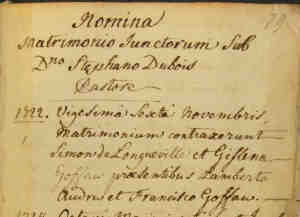 Nomina 79
Matrimonio Junctorum Sub
Dno Stephano Dubois
Pastore
1722. Vigesima Sexta Novembris
Matrimonium contraxerunt
Simon de Longueville et Gislena
Goffaux praesentibus Lamberto
et Francisco Goffaux.